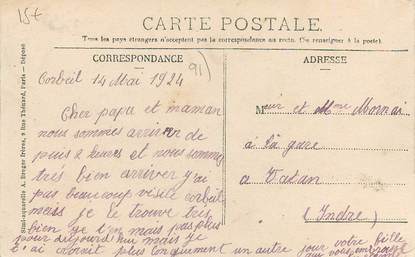 15+
CARTE POSTALE.
Tous les pays étrangers n'acceptent pas la correspondance au recto. (Se renseigner à la poste).
CORRESPONDANCE
ADRESSE
91)
Corbeil 14 Mai 1924
Cher papa et maman
nous sommes arriver de
puis 2 heures et nous somme
très bien arriver j'ai
pas beaucoup visité corbeil
mais je le trouve très
bien je t'en mais pas plus
pour aujourd'hui mais je
écrirait plus longuement un autre jour votre fille
qui vous embrasse
Msieur et Mme Mornas
à la gare
a Vatan
(Indre)
Simi-aquarelle A. Breger Frères, 9 Rue Thénard, Paris — Déposé